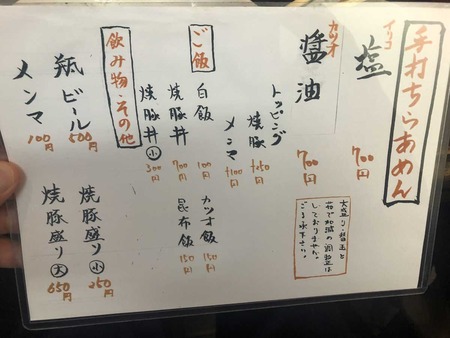 手打ちらあめん
イリコ
塩 700円
カツオ
醤油 700円
トッピング
焼豚 +250
メンマ +100円
大盛り・替玉と
茹で加減の調整は
しておりません。
ご了承下さい。
ご飯
白飯 100円
焼豚丼 700円
焼豚丼 小 300円
カツオ飯 150円
昆布飯 150円
飲み物・その他
瓶ビール 500円
メンマ 100円
焼豚盛り 小 250円
焼豚盛り 大 650円